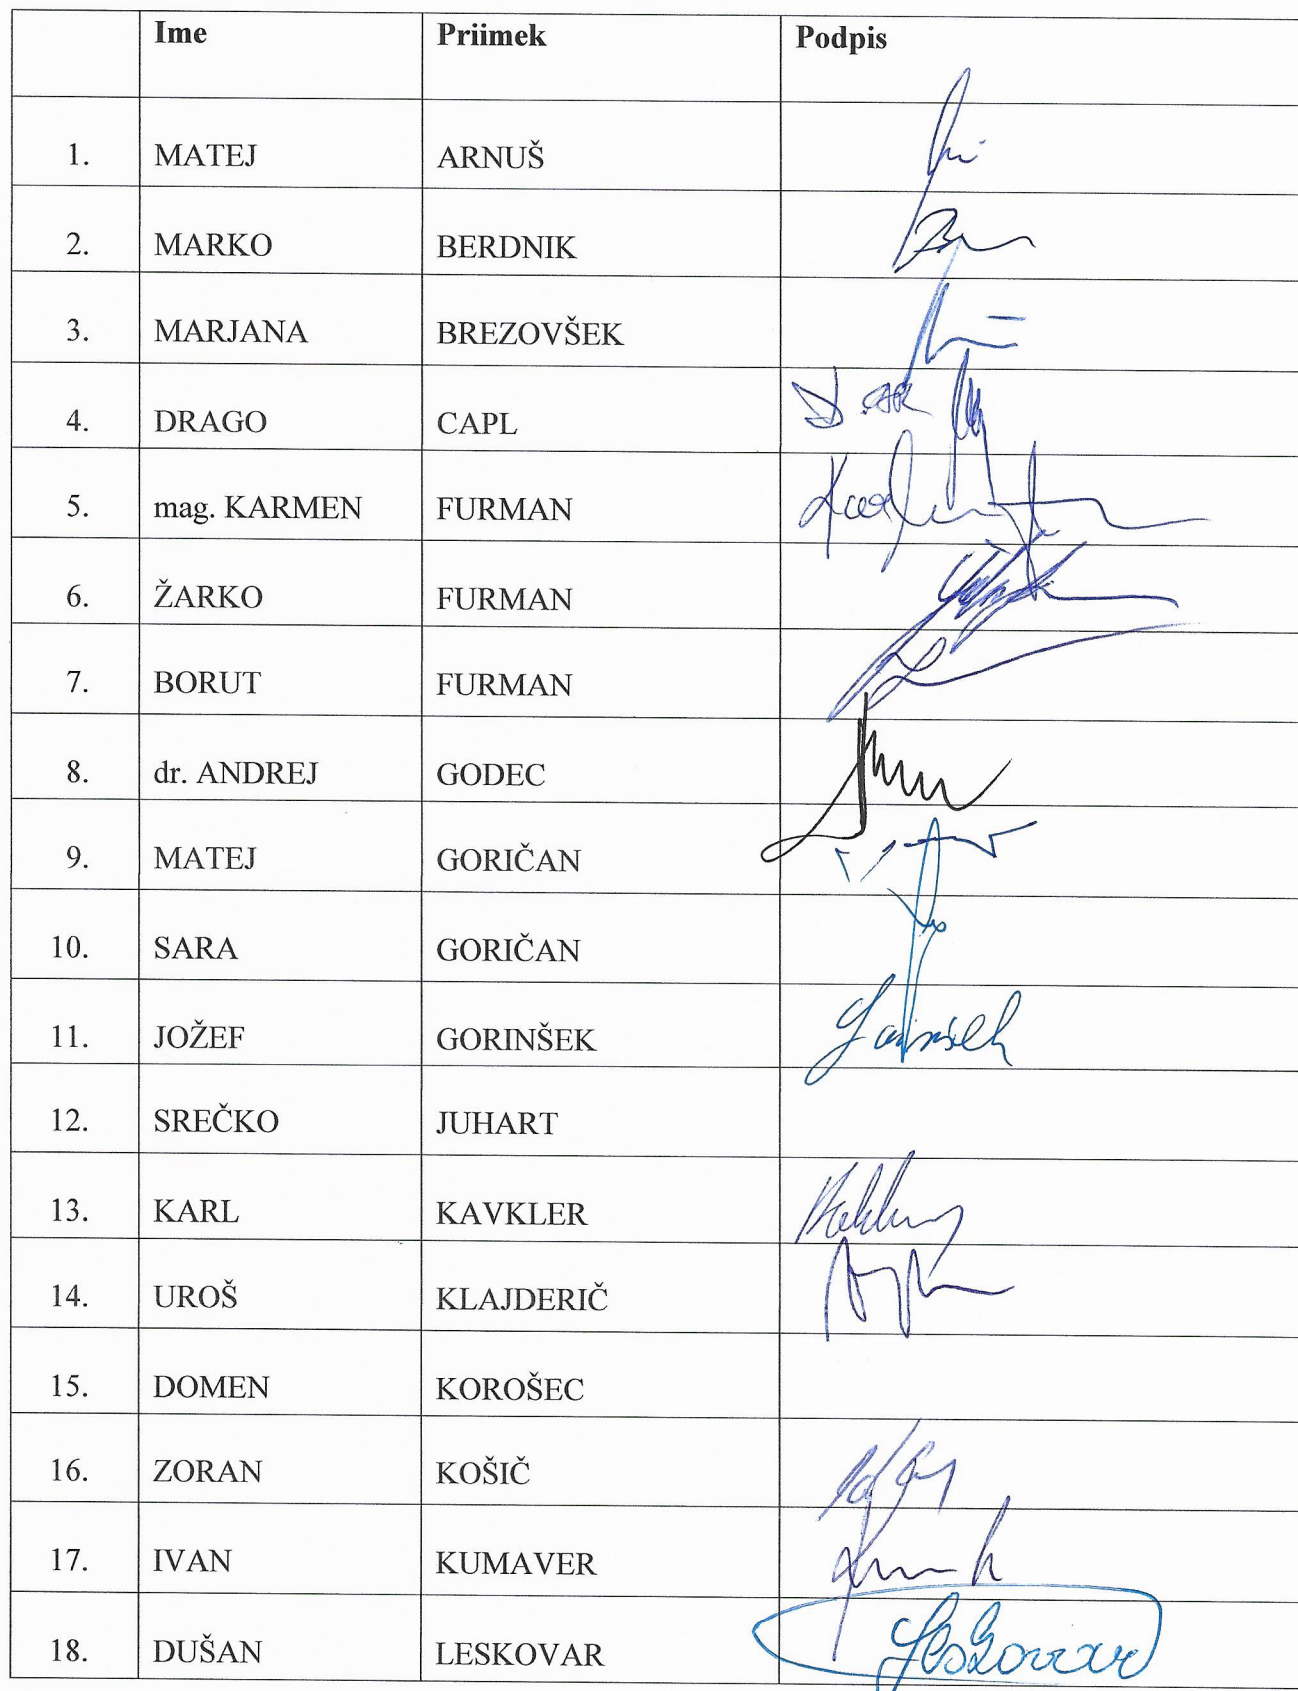 Ime Priimek Podpis
1. MATEJ ARNUŠ
2. MARKO BERDNIK
3. MARJANA BREZOVŠEK
4. DRAGO CAPL
5. mag. KARMEN FURMAN
6. ŽARKO FURMAN
7. BORUT FURMAN
8. dr. ANDREJ GODEC
9. MATEJ GORIČAN
10. SARA GORIČAN
11. JOŽEF GORINŠEK
12. SREČKO JUHART
13. KARL KAVKLER
14. UROŠ KLAJDERIČ
15. DOMEN KOROŠEC
16. ZORAN KOŠIČ
17. IVAN KUMAVER
18. DUŠAN LESKOVAR